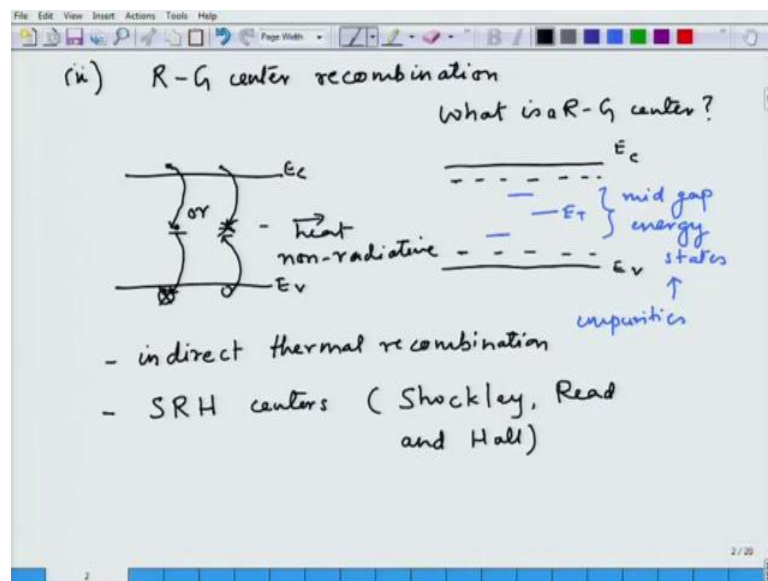 File Edit View Insert Actions Tools Help
Page Width
B I
(ii) R-G center recombination
What is a R-G center?
Ec
or
heat
non-radiative
Ev
Ec
ET
mid gap
energy
states
Ev
impurities
- indirect thermal recombination
- SRH centers (Shockley, Read
and Hall)
2 / 20
2